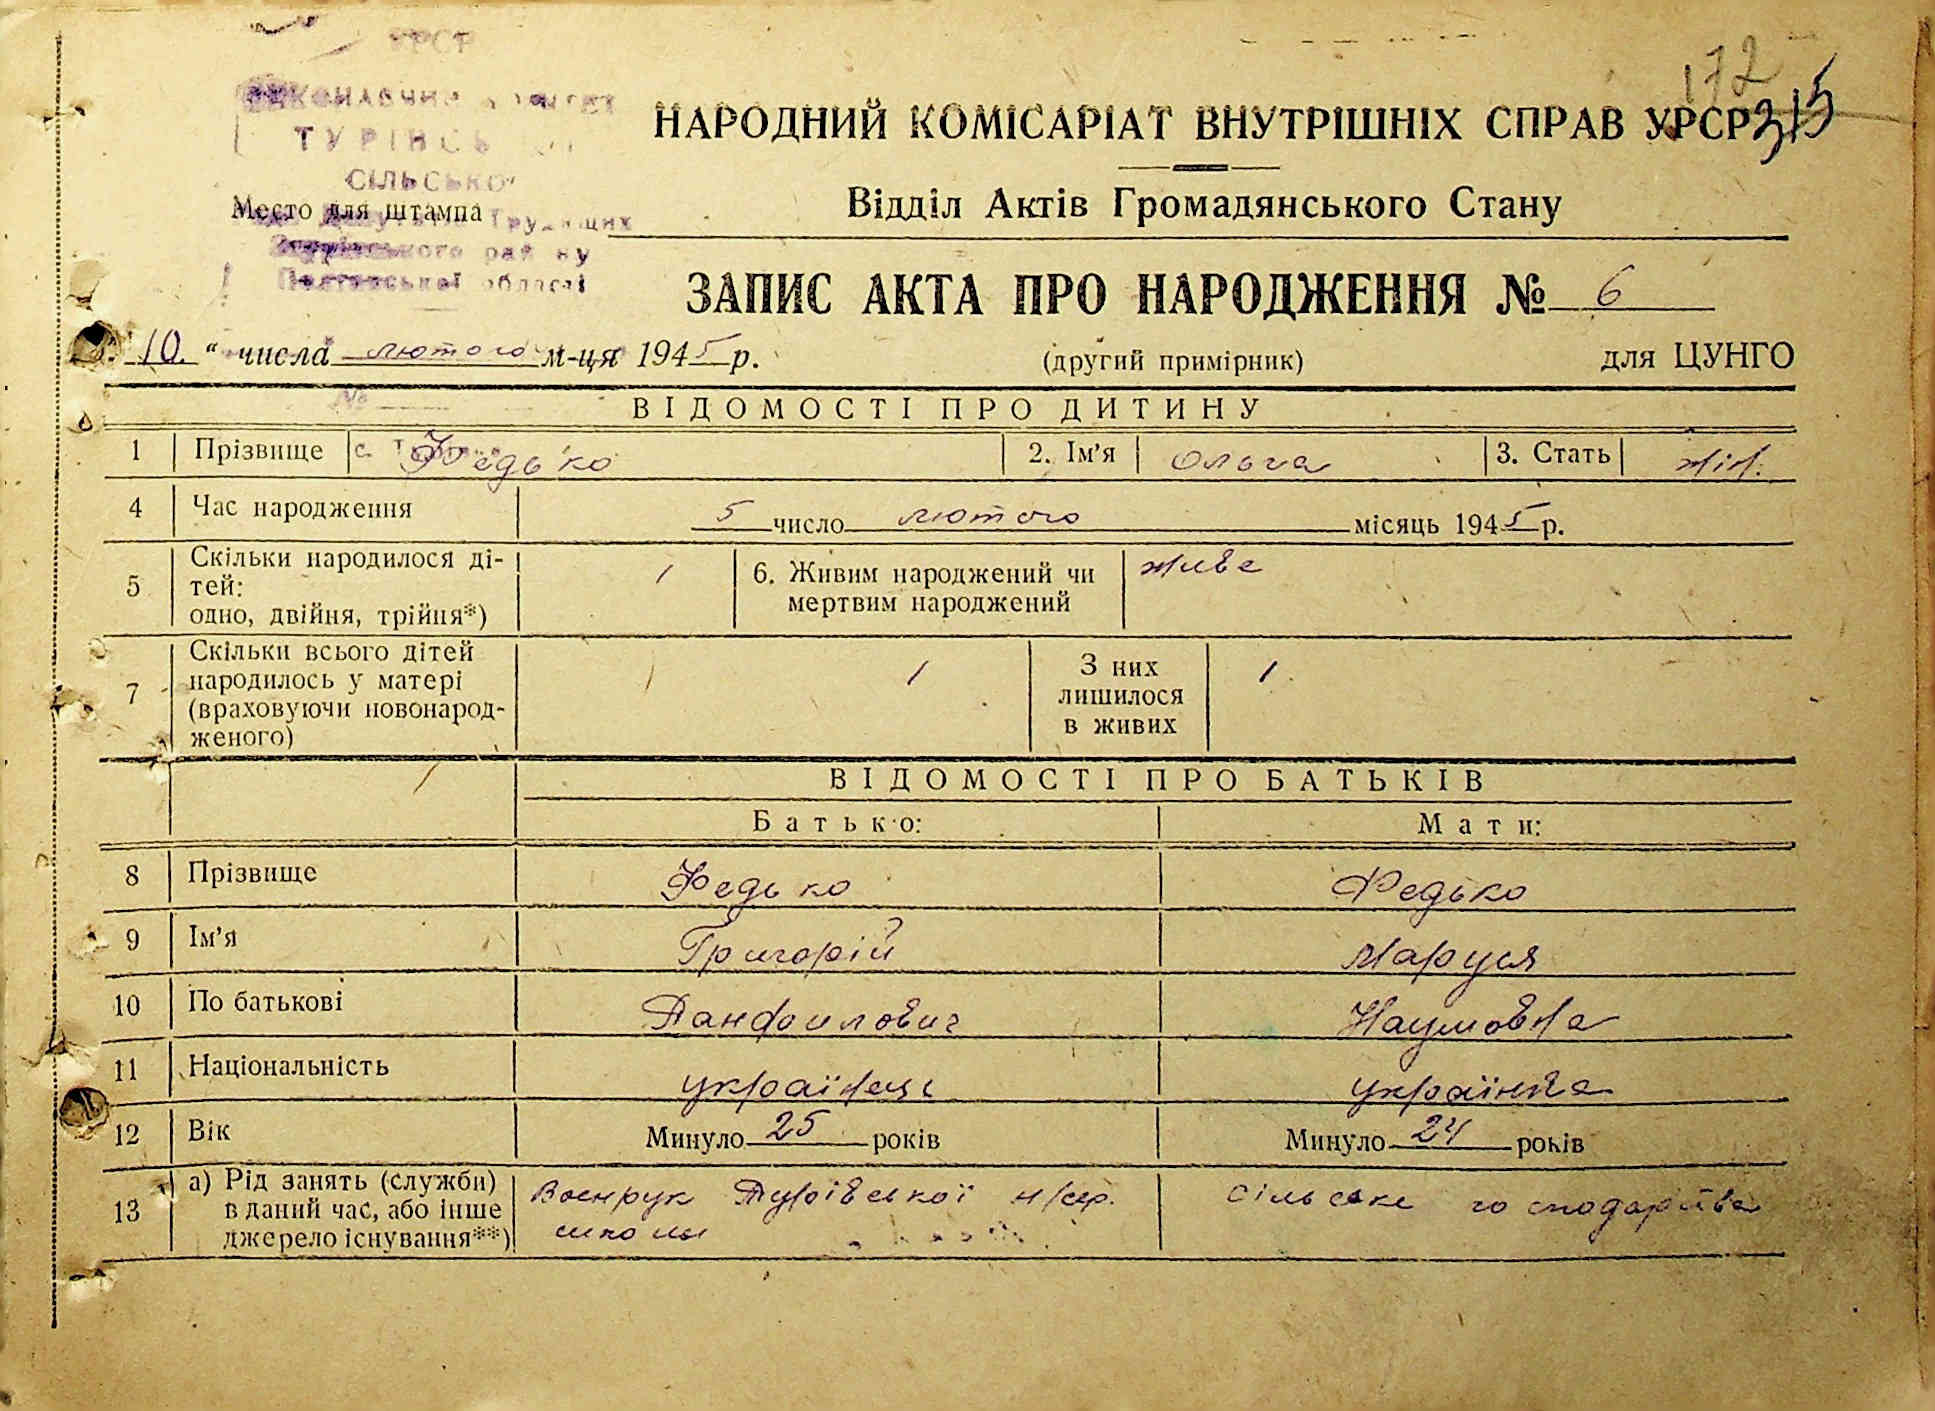 УРСР
ВИКОНАВЧИЙ КОМІТЕТ
ТУРІВСЬ
СІЛЬСЬКО
Место для штампа
Трудящих
ського району
Полтавської області
172
315
НАРОДНИЙ КОМІСАРІАТ ВНУТРІШНІХ СПРАВ УРСР
Відділ Актів Громадянського Стану
ЗАПИС АКТА ПРО НАРОДЖЕННЯ № 6
10 " числа лютого м-ця 1945 р. (другий примірник) для ЦУНГО
№
ВІДОМОСТІ ПРО ДИТИНУ
1 Прізвище с. Федько 2. Ім'я Ольга 3. Стать жін.
4 Час народження 5 число лютого місяць 1945 р.
5 Скільки народилося ді-
тей:
одно, двійня, трійня*) 1
6. Живим народжений чи
мертвим народжений живе
7 Скільки всього дітей
народилось у матері
(враховуючи новонарод-
женого) 1
З них
лишилося
в живих 1
ВІДОМОСТІ ПРО БАТЬКІВ
Батько: Мати:
8 Прізвище Федько Федько
9 Ім'я Григорій Маруся
10 По батькові Панфилович Наумовна
11 Національність українець українка
12 Вік Минуло 25 років Минуло 24 років
13 а) Рід занять (служби)
в даний час, або інше
джерело існування**)
Военрук Турівської н/сер.
школы
сільське господарства